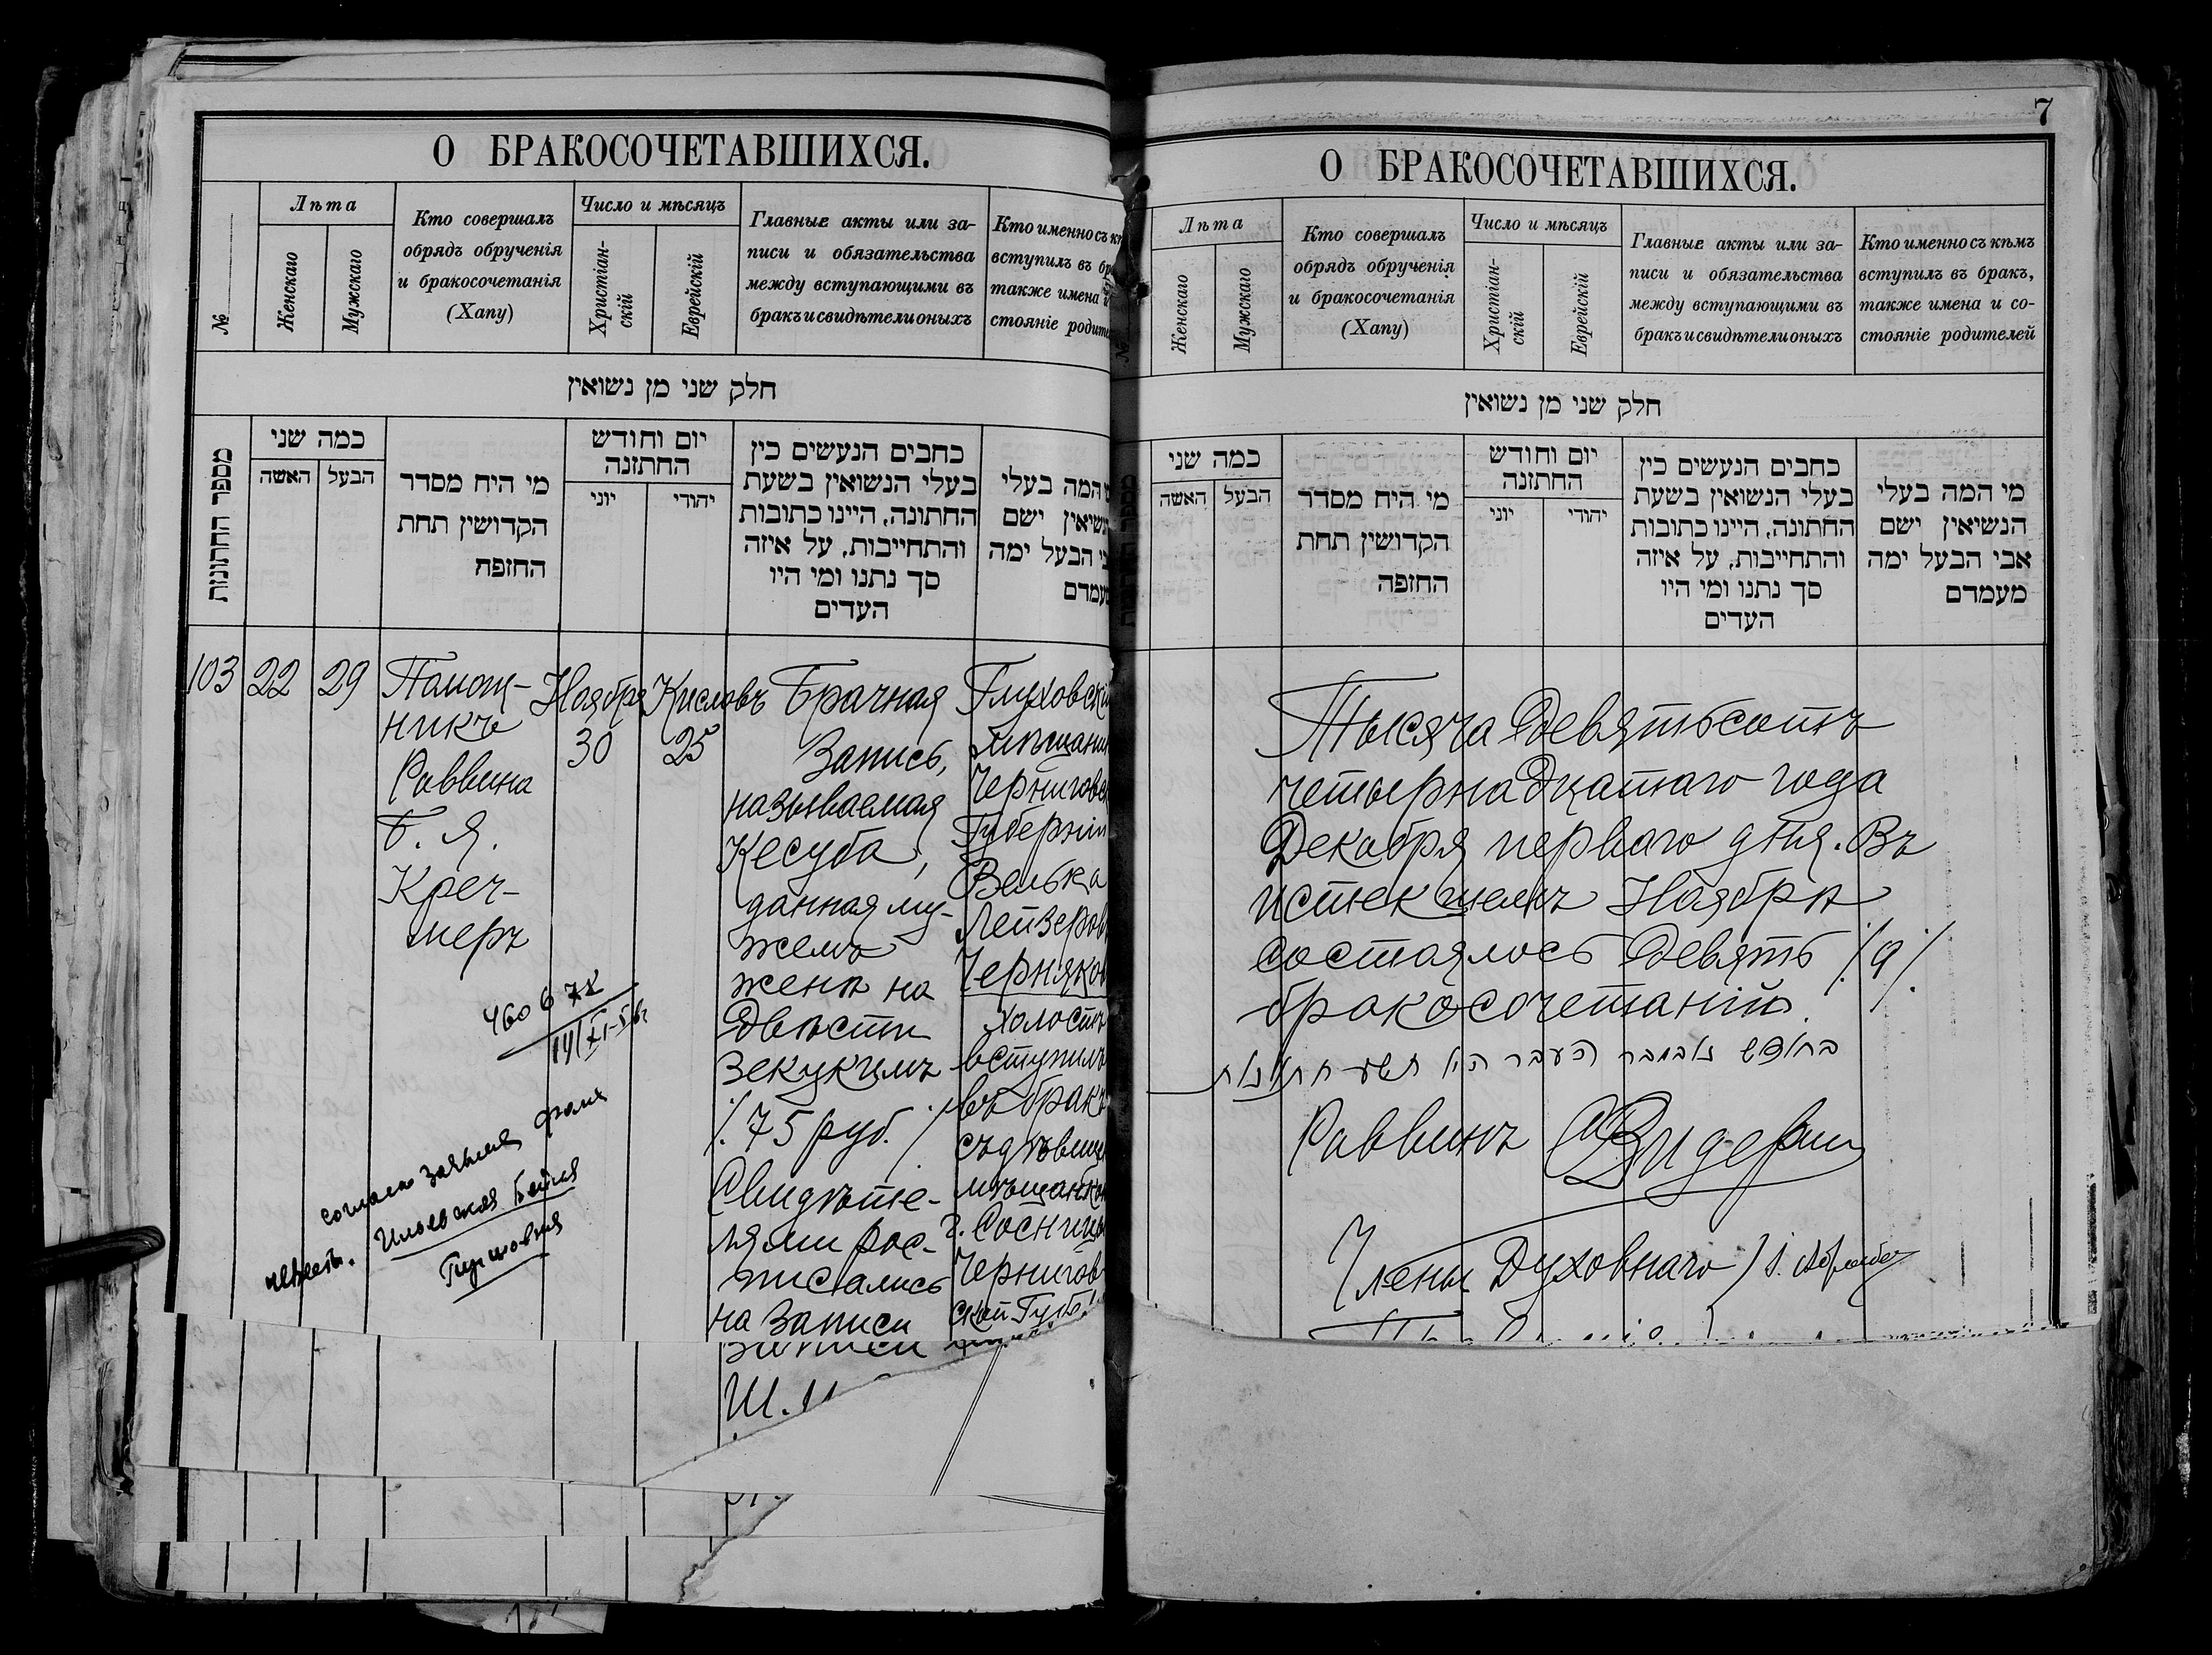 О БРАКОСОЧЕТАВШИХСЯ.
№
Лѣта
Женскаго
Мужскаго
Кто совершалъ
обрядъ обрученія
и бракосочетанія
(Хапу)
Число и мѣсяцъ
Христіан-
скій
Еврейскій
Главные акты или за-
писи и обязательства
между вступающими въ
бракъ и свидѣтели оныхъ
Кто именно съ
вступилъ въ
также имена
стояніе
חלק שני מן נשואין
מספר החתונות
כמה שני
האשה
הבעל
מי היח מסדר
הקדושין תחת
החזפח
יום וחודש
החתזנה
יוני
יהודי
כחבים הנעשים כין
בעלי הנשואין בשעת
החתונה, היינו כתובות
והתחייבות, על איזה
סך נתנו ומי היו
העדים
המה בעלי
ישם
הבעל ימה
103
22
29
Помощ-
никъ
Раввина
Б. Я.
Креч-
меръ
Ноября
30
Кисловъ
25
Брачная
Запись,
называемая
Кесуба,
данная му-
жемъ
женѣ на
Двѣсти
Зекукимъ
/. 75 руб. ./
Свидѣте-
лями рос-
писались
на записи
Глуховскій
мѣщанин
Черниговск
Губерніи
Велька
Лейзеров
Черняков
холостъ
вступилъ
въ бракъ
съ дѣвицей
мѣщанкой
г. Сосницы
Чернигов-
ской Губ.
460 6 78
Гиршовна
записи
Ш.
7
О БРАКОСОЧЕТАВШИХСЯ.
Лѣта
Женскаго
Мужскаго
Кто совершалъ
обрядъ обрученія
и бракосочетанія
(Хапу)
Число и мѣсяцъ
Христіан-
скій
Еврейскій
Главные акты или за-
писи и обязательства
между вступающими въ
бракъ и свидѣтели оныхъ
Кто именно съ кѣмъ
вступилъ въ бракъ,
также имена и со-
стояніе родителей
חלק שני מן נשואין
כמה שני
האשה
הבעל
מי היח מסדר
הקדושין תחת
החזפה
יום וחודש
החתזנה
יוני
יהודי
כחבים הנעשים כין
בעלי הנשואין בשעת
החתונה, היינו כתובות
והתחייבות, על איזה
סך נתנו ומי היו
העדים
מי המה בעלי
הנשיאין ישם
אבי הבעל ימה
מעמדם
Тысяча Девятьсотъ
четырнадцатаго года
Декабря перваго дня. Въ
истекшемъ Ноябрѣ
состоялось Девять /. 9 ./
бракосочетаній.
בחודש נאבמבר העבר היו תשע חתונות
Раввинъ
Члены Духовнаго